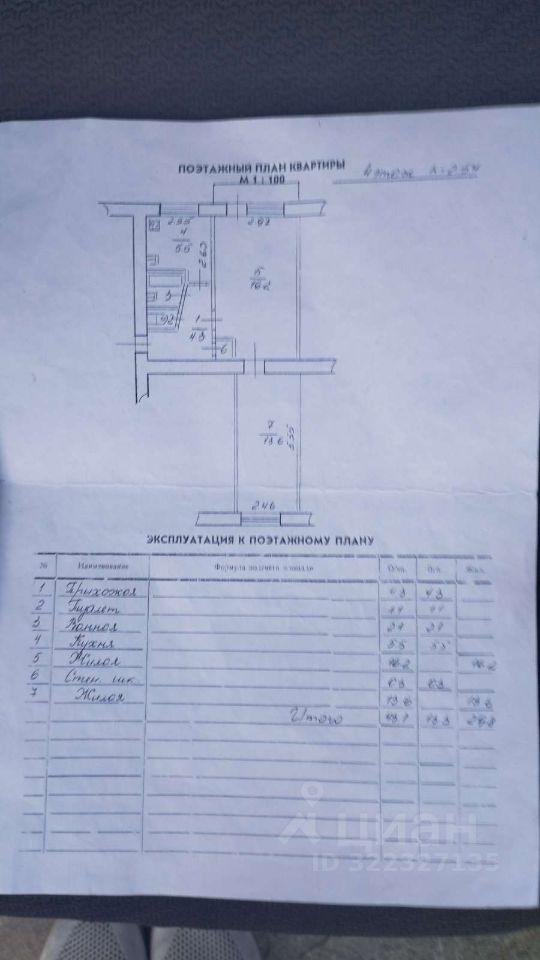 ПОЭТАЖНЫЙ ПЛАН КВАРТИРЫ
М 1 : 100
4 этаж h=2.54
2.35
2.92
4
5.5
2.63
5
16.2
3
92
1
4.3
6
7
13.6
5.55
2.46
ЭКСПЛУАТАЦИЯ К ПОЭТАЖНОМУ ПЛАНУ
№ Наименование Формула подсчета площади
1 Прихожая 4.3 4.3
2 Туалет
3 Ванная
4 Кухня 5.5 5.5
5 Жилая 16.2 16.2
6 Стен. шк.
7 Жилая 13.6 13.6
Итого 13.3 29.8
ЦИАН
ID 322327135